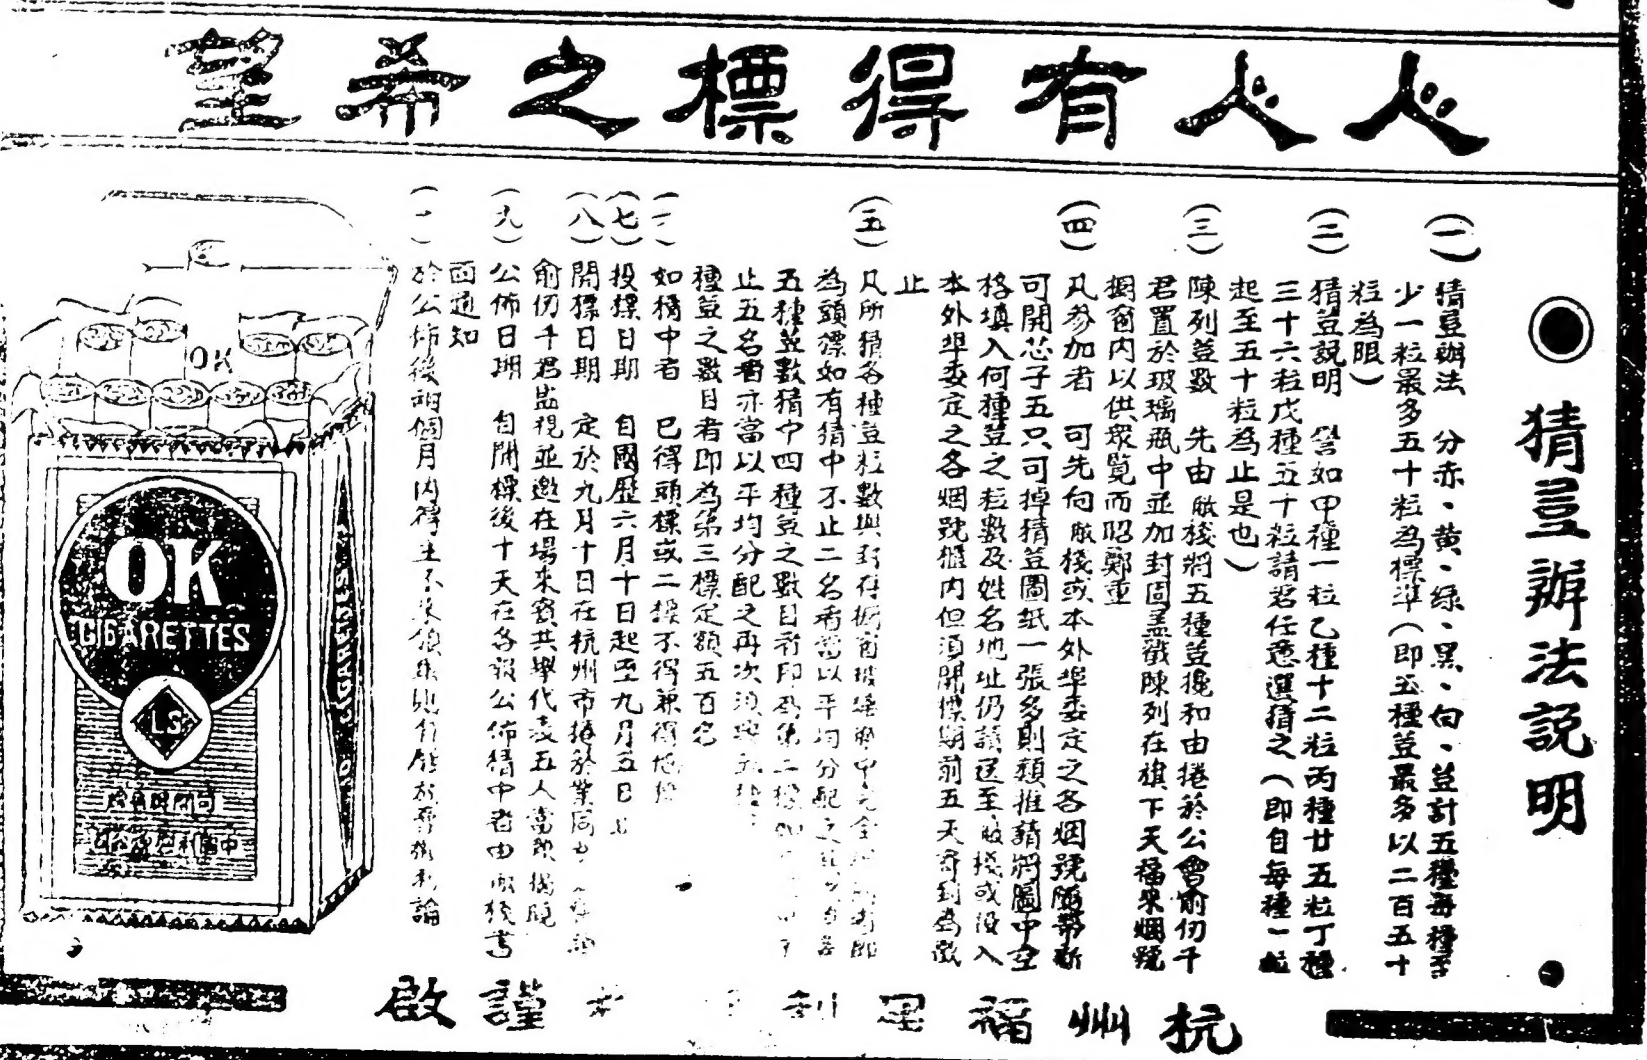 人人有得標之希望
猜荳辦法説明
(一) 猜荳辦法 分赤、黄、緑、黑、白、荳計五種每種至
少一粒最多五十粒為標準(即五種荳最多以二百五十
粒為限)
(二) 猜荳説明 譬如甲種一粒乙種十二粒丙種廿五粒丁種
三十六粒戊種五十粒請君任意選猜之(即自每種一粒
起至五十粒為止是也)
(三) 陳列荳數 先由敝棧將五種荳攙和由捲菸公會俞仞千
君置於玻璃瓶中並加封固盖戳陳列在旗下天福來烟號
櫥窗内以供衆覧而昭鄭重
(四) 凡參加者 可先向敝棧或本外埠委定之各烟號隨帶新
可開芯子五只可掉猜荳圖紙一張多則類推請將圖中空
格填入何種荳之粒數及姓名地址仍請送至敝棧或投入
本外埠委定之各烟號櫃内但須開標期前五天寄到為截
止
(五) 凡所猜各種荳粒數與封存櫥窗玻璃瓶中完全
為頭標如有猜中不止二名者當以平均分配之
五種荳數猜中四種荳之數目者即為第二標如
止五名者亦當以平均分配之再次
種荳之數目者即為第三標定額五百名
如猜中者 已得頭標或二標不得兼得
(七) 投標日期 自國歷六月十日起至九月五日止
(八) 開標日期 定於九月十日在杭州市捲菸業同
俞仞千君監視並邀在場來賓共舉代表五人當衆揭曉
(九) 公佈日期 自開標後十天在各報公佈猜中者由敝棧書
面通知
於公佈後
個月内得主不來領
論
OK
OK
CIGARETTES
LS
OK CIGARETTES
杭州福
謹啟